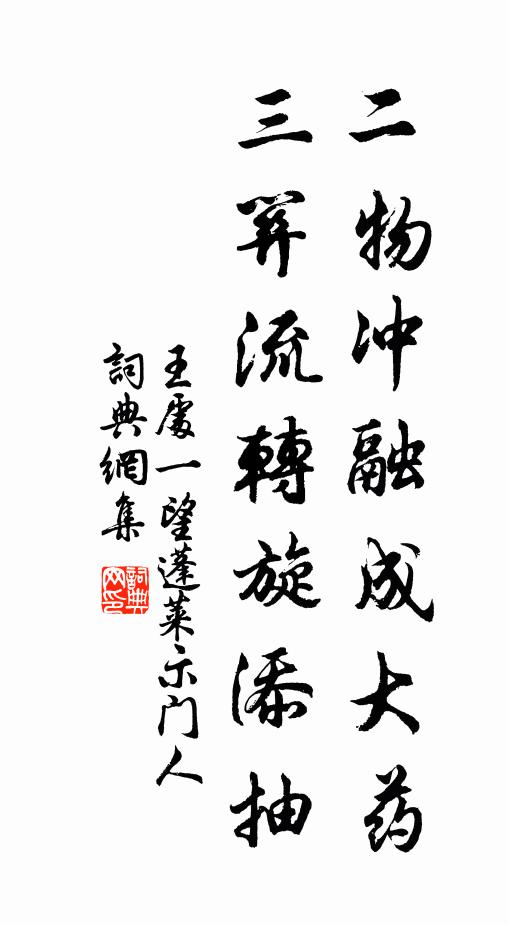 二物冲融成大药
三笄流轉旋添抽
王處一望蓬莱示门人
詞典網集
詞典网印